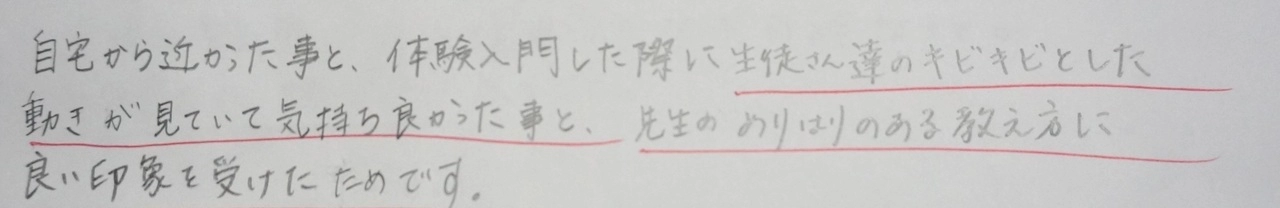 自宅から近かった事と、体験入門した際に生徒さん達のキビキビとした
動きが見ていて気持ち良かった事と、先生のめりはりのある教え方に
良い印象を受けたためです。